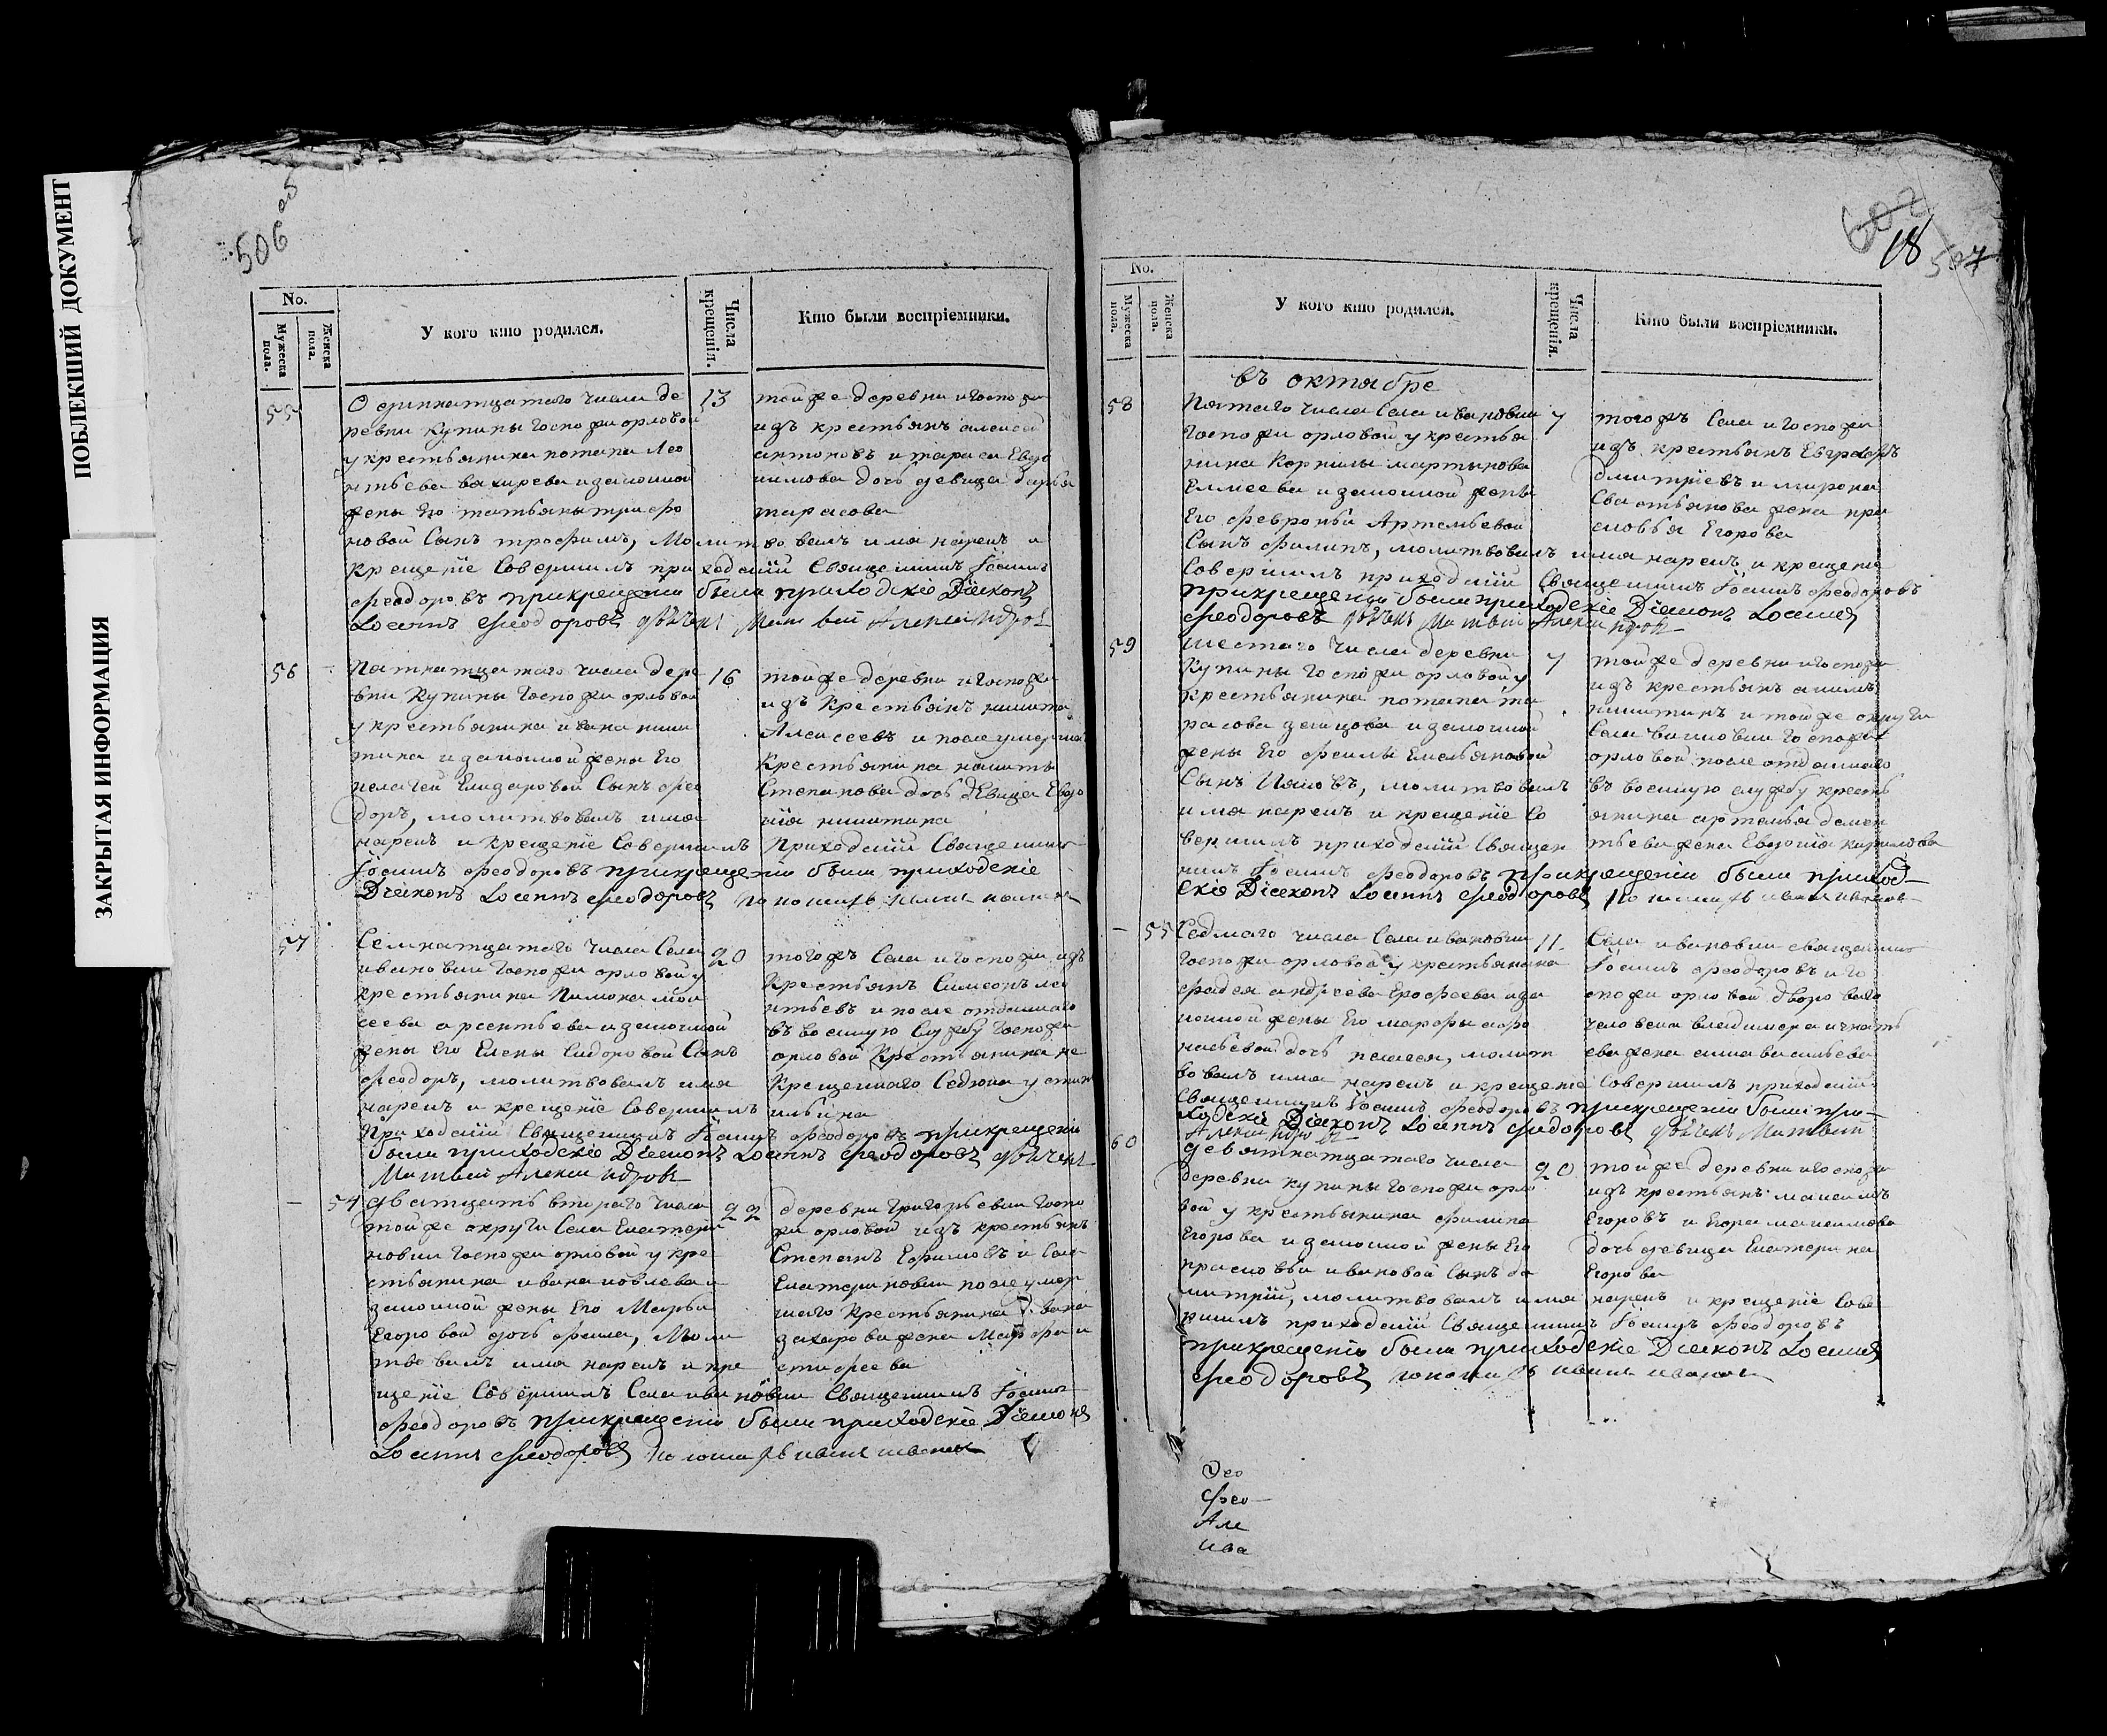 ПОБЛЕКШИЙ ДОКУМЕНТ
ЗАКРЫТАЯ ИНФОРМАЦИЯ
506 об
No.
Мужеска пола.
Женска пола.
У кого кто родился.
Числа крещенія.
Кто были воспріемники.
55
13
Одиннатцатаго числа де
ревни Купины Госпожи орловой
у крестьянина потапа Лео
нтьева вахирева и законной
жены Его татьяны трифо
новой Сынъ трофимъ, Молитвовалъ имя нарекъ и
крещеніе Совершилъ приходскій Священникъ Іоаннъ
феодоровъ прикрещеніи были приходскіе Діяконъ
Іоаннъ феодоровъ дьячекъ Матвей Александровъ
той же деревни и Госпожи
изъ крестьянъ алексей
антоновъ и тараса Евдо
кимова дочь девица дарья
тарасова
56
16
Пятнатцатаго числа дере
вни Купины Госпожи орловой
у крестьянина ивана ники
тина и законной жены Его
пелагеи Елизаровой Сынъ фео
доръ, молитвовалъ имя
нарекъ и крещеніе Совершилъ Приходскій Священникъ
Іоаннъ феодоровъ прикрещеніи были приходскіе
Діяконъ Іоаннъ феодоровъ пономарь
той же деревни и Госпожи
изъ Крестьянъ никита
Алексеевъ и после умершаго
Крестьянина никиты
Степанова дочь девица Евдо
кія никитина
57
20
Семнатцатаго числа Села
ивановки Госпожи орловой у
крестьянина Пимона мои
сеева арсентьева и законной
жены Его Елены Сидоровой Сынъ
феодоръ, молитвовалъ имя
нарекъ и крещеніе Совершилъ
Приходскій Священникъ Іоаннъ феодоровъ прикрещеніи
были приходскіе Діяконъ Іоаннъ феодоровъ дьячекъ
Матвей Александровъ
тогожъ Села и Госпожи изъ
Крестьянъ Симеонъ лео
нтьевъ и после отданнаго
въ военную Службу Госпожи
орловой Крестьянина не
Крещеннаго
ильина
54
22
Дватцать втораго числа
той же округи Села Екатери
новки Госпожи орловой у кре
стьянина ивана
законной жены Его Марьи
Егоровой дочь фекла, Моли
твовалъ имя нарекъ и кре
щеніе Совершилъ Села ивановки Священникъ Іоаннъ
феодоровъ прикрещеніи были приходскіе Діяконъ
Іоаннъ феодоровъ пономарь
деревни Григорьевки Госпо
жи орловой изъ крестьянъ
Степанъ Ефимовъ и Села
Екатериновки после умер
шаго Крестьянина Івана
захарова жена Марфа
602
18
507
No.
Мужеска пола.
Женска пола.
У кого кто родился.
Числа крещенія.
Кто были воспріемники.
въ октябре
58
7
Пятаго числа Села ивановки
Госпожи орловой у крестья
нина Корнилы мартынова
Елисеева и законной жены
Его февроньи Артемьевой
Сынъ филипъ, молитвовалъ имя нарекъ и крещеніе
Совершилъ приходскій Священникъ Іоаннъ феодоровъ
прикрещеніи были приходскіе Діяконъ Іоаннъ
феодоровъ дьячекъ Матвей Александровъ
тогожъ Села и Госпожи
изъ крестьянъ Евграфъ
дмитріевъ и мирона
Савостьянова жена пра
сковья Егорова
59
7
Шестаго числа деревни
Купины Госпожи орловой у
крестьянина потапа та
расова и законной
жены Его феклы Емельяновой
Сынъ Иаковъ, молитвовалъ
имя нарекъ и крещеніе Со
вершилъ приходскій Священ
никъ Іоаннъ феодоровъ прикрещеніи были приход
скіе Діяконъ Іоаннъ феодоровъ пономарь
той же деревни и Госпожи
изъ крестьянъ акимъ
никитинъ и той же округи
Села Госпожи
орловой после отданнаго
въ военную службу кресть
янина артемья демен
тьева жена Евдокія
55
11.
Седмаго числа Села ивановки
Госпожи орловой у крестьянина
фадея андреева Ерофеева и за
конной жены Его марфы афо
насьевой дочь пелагея, молит
вовалъ имя нарекъ и крещеніе Совершилъ приходскій
Священникъ Іоаннъ феодоровъ прикрещеніи были при
ходскіе Діяконъ Іоаннъ феодоровъ дьячекъ Матвей
Александровъ
Села ивановки священникъ
Іоаннъ феодоровъ и го
спожи орловой двороваго
человека владимера игнать
ева жена анна васильева
60
20
Девятнатцатаго числа
деревни купины Госпожи орло
вой у крестьянина филипа
Егорова и законной жены Его
прасковьи ивановой Сынъ ди
митрій, молитвовалъ имя нарекъ и крещеніе Сове
ршилъ приходскій Священникъ Іоаннъ феодоровъ
прикрещеніи были приходскіе Діяконъ Іоаннъ
феодоровъ пономарь
той же деревни и госпожи
изъ крестьянъ максимъ
Егоровъ и Егора максимова
дочь девица Екатерина
Егорова
Фео
Але
ива